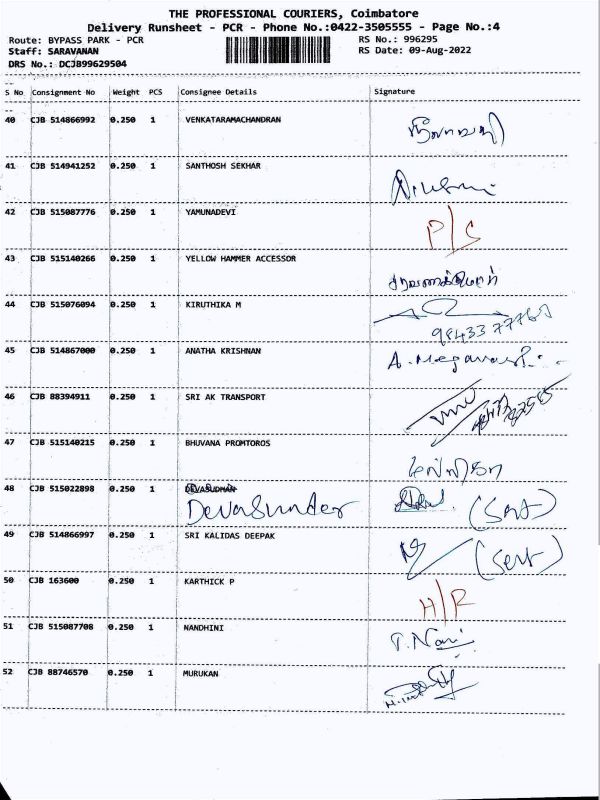 THE PROFESSIONAL COURIERS, Coimbatore
Delivery Runsheet - PCR - Phone No.:0422-3505555 - Page No.:4
Route: BYPASS PARK - PCR RS No.: 996295
Staff: SARAVANAN RS Date: 09-Aug-2022
DRS No.: DCJB99629504
S No Consignment No Weight PCS Consignee Details Signature
40 CJB 514866992 0.250 1 VENKATARAMACHANDRAN
41 CJB 514941252 0.250 1 SANTHOSH SEKHAR
42 CJB 515087776 0.250 1 YAMUNADEVI P/S
43 CJB 515140266 0.250 1 YELLOW HAMMER ACCESSOR
44 CJB 515076094 0.250 1 KIRUTHIKA M
45 CJB 514867000 0.250 1 ANATHA KRISHNAN
46 CJB 88394911 0.250 1 SRI AK TRANSPORT
47 CJB 515140215 0.250 1 BHUVANA PROMTOROS
48 CJB 515022898 0.250 1 DEVASUDHAN
Devasunder
49 CJB 514866997 0.250 1 SRI KALIDAS DEEPAK
50 CJB 163600 0.250 1 KARTHICK P H/R
51 CJB 515087708 0.250 1 NANDHINI
52 CJB 88746570 0.250 1 MURUKAN